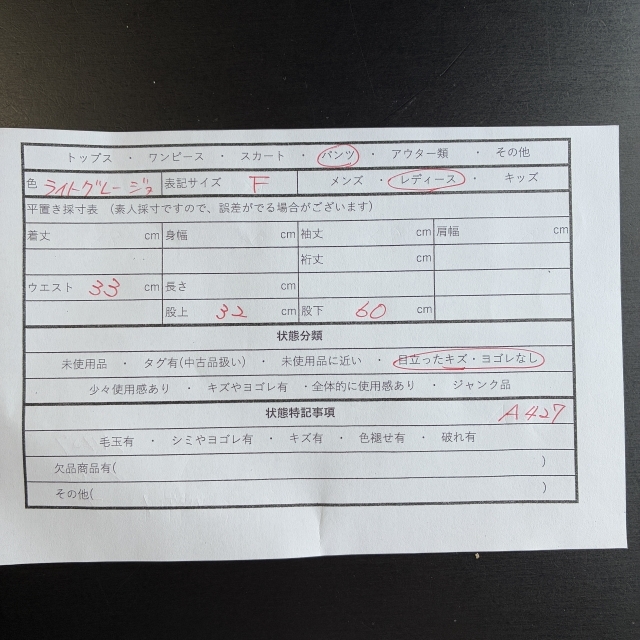 トップス ・ ワンピース ・ スカート ・ パンツ ・ アウター類 ・ その他
色 ライトグレージュ 表記サイズ F メンズ ・ レディース ・ キッズ
平置き採寸表 (素人採寸ですので、誤差がでる場合がございます)
着丈 cm 身幅 cm 袖丈 cm 肩幅 cm
裄丈 cm
ウエスト 33 cm 長さ cm
股上 32 cm 股下 60 cm
状態分類
未使用品 ・ タグ有(中古品扱い) ・ 未使用品に近い ・ 目立ったキズ・ヨゴレなし
少々使用感あり ・ キズやヨゴレ有 ・全体的に使用感あり ・ ジャンク品
状態特記事項 A427
毛玉有 ・ シミやヨゴレ有 ・ キズ有 ・ 色褪せ有 ・ 破れ有
欠品商品有( )
その他( )